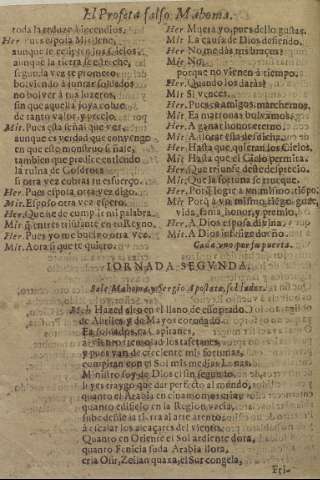 El Profeta falso Mahoma.
toda la
Her. Pues esposa Mitilene,
aunque se eclypsen los cielos,
aunque la tierra se estreche,
segunda vez te prometo
bolviendo a juntar soldados
no bolver a tus luzeros,
sin que aquella joya cobre
de tanto valor, y precio.
Mit. Pues esta señal que ver,
aunque es verdad que convengo
en que este monstruo sin nace,
tambien que predice entiendo
la ruina de Cosdroes
si otra vez cobras tu esfuerço.
Her. Pues esposa otra vez digo.
Mit. Esposo otra vez espero.
Her. Que he de cumplir mi palabra.
Mit. q̃ entres triunfante en tu Reyno.
Her. Pues yo me buelvo otra vez.
Mit. Aora si que te quiero.
Her. Muera yo, pues dello gustas.
Mit. La causa de Dios defiendo.
Her. No me dàs tus braços?
Mit. No,
porque no vienen a tiempo.
Her. Quando los daràs?
Mit. Si vences.
Her. Pues, ea amigos, marchemos.
Mit. Ea matronas bolvamos.
Her. A ganar honor eterno.
Mit. A llorar esta desdicha.
Her. Hasta que quieran los Cielos.
Mit. Hasta que el Cielo permita.
Her. Que triunfe deste desprecio.
Mit. Que la fortuna se trueque.
Her. Porq̃ logre a un mismo tiẽpo.
Mit. Porq̃ à vn mismo tiẽpo goze,
vida, fama, honor, y premio.
Her. A Dios esposa divina.
Mit. A Dios infelize dueño.
Cada vno por su puerta.
IORNADA SEGVNDA.
Sale Mahoma, y Sergio Apostata, soldados.
Mah. Hazed alto en el llano de este prado
de Abriles, y de Mayos coronado.
Ea soldados, ea Capitanes,
al viento tremolad los tafetanes,
y pues van de creciente mis fortunas,
compitan con el Sol mis medias Lunas.
Ministro soy de Dios el sin segundo,
leyes traygo que dar perfecto al mundo,
quanto el Arabia en cinamomos cria,
quanto edifeso en la Region vacia,
sube desde la tierra al arte atento,
à escalar los alcaçares del viento.
Quanto en Oriente el Sol ardiente dora,
quanto Fenicia suda Arabia llora,
cria Ofir, Zeilan quaxa, el Sur congela,